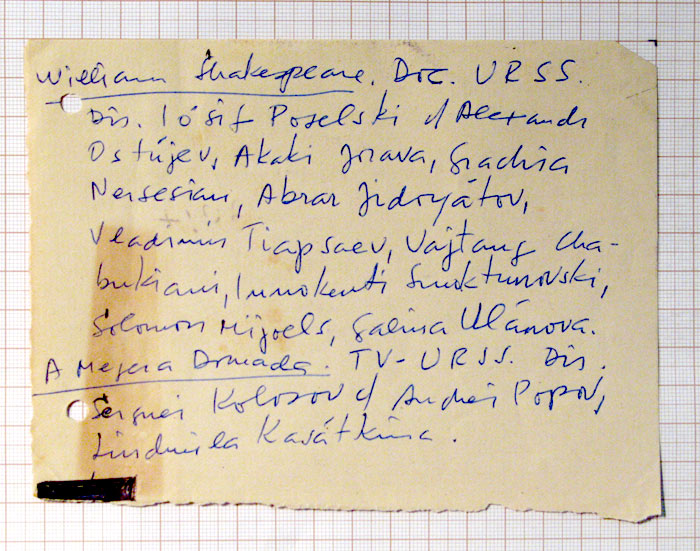 William Shakespeare. Doc. URSS.
Dir. Iósif Poselski c/ Alexandr
Ostújev, Akaki Jrava, Grachia
Nersesian, Abrar Jidoyátov,
Vladimir Tiapsaev, Vajtang Cha-
bukiani, Innokenti Smoktunovski,
Solomon Mijoels, Galina Ulánova.
A Megera Domada. TV-URSS. Dir.
Serguei Kolosov c/ Andrei Popov,
Liudmila Kasátkina.